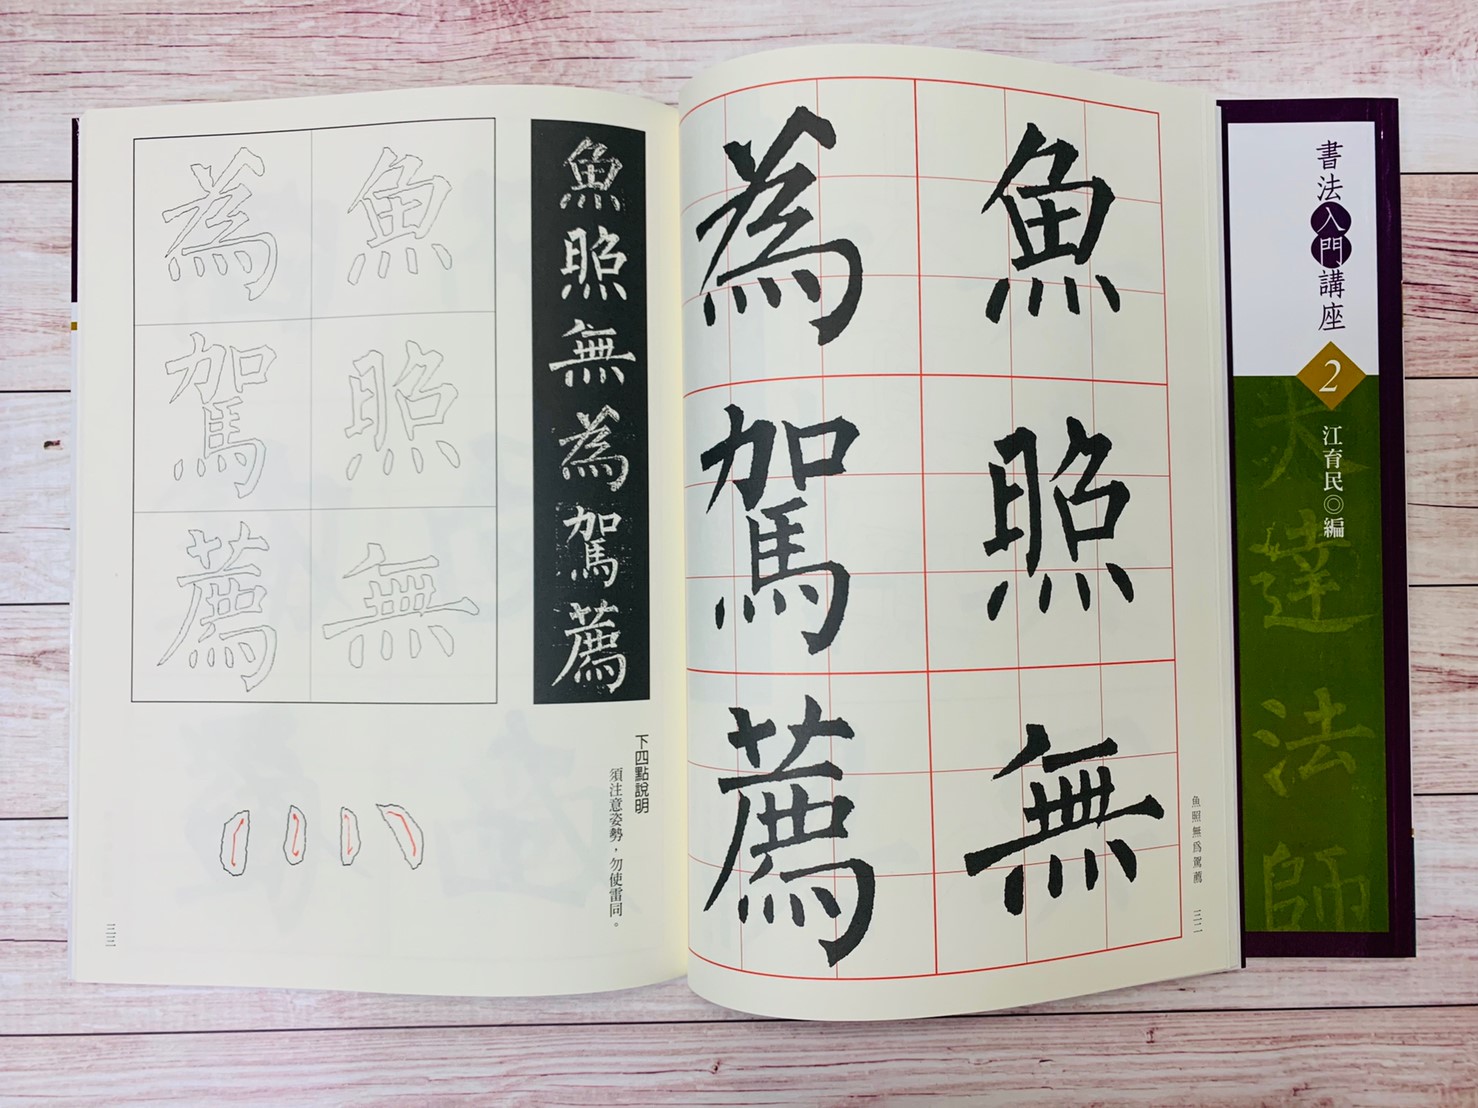 書法入門講座
2
江育民◎編
大達法師
魚照無爲駕薦
三二
魚照無
為駕薦
魚照無為駕薦
下四點說明
須注意姿勢，勿使雷同。
魚照無
為駕薦
三三